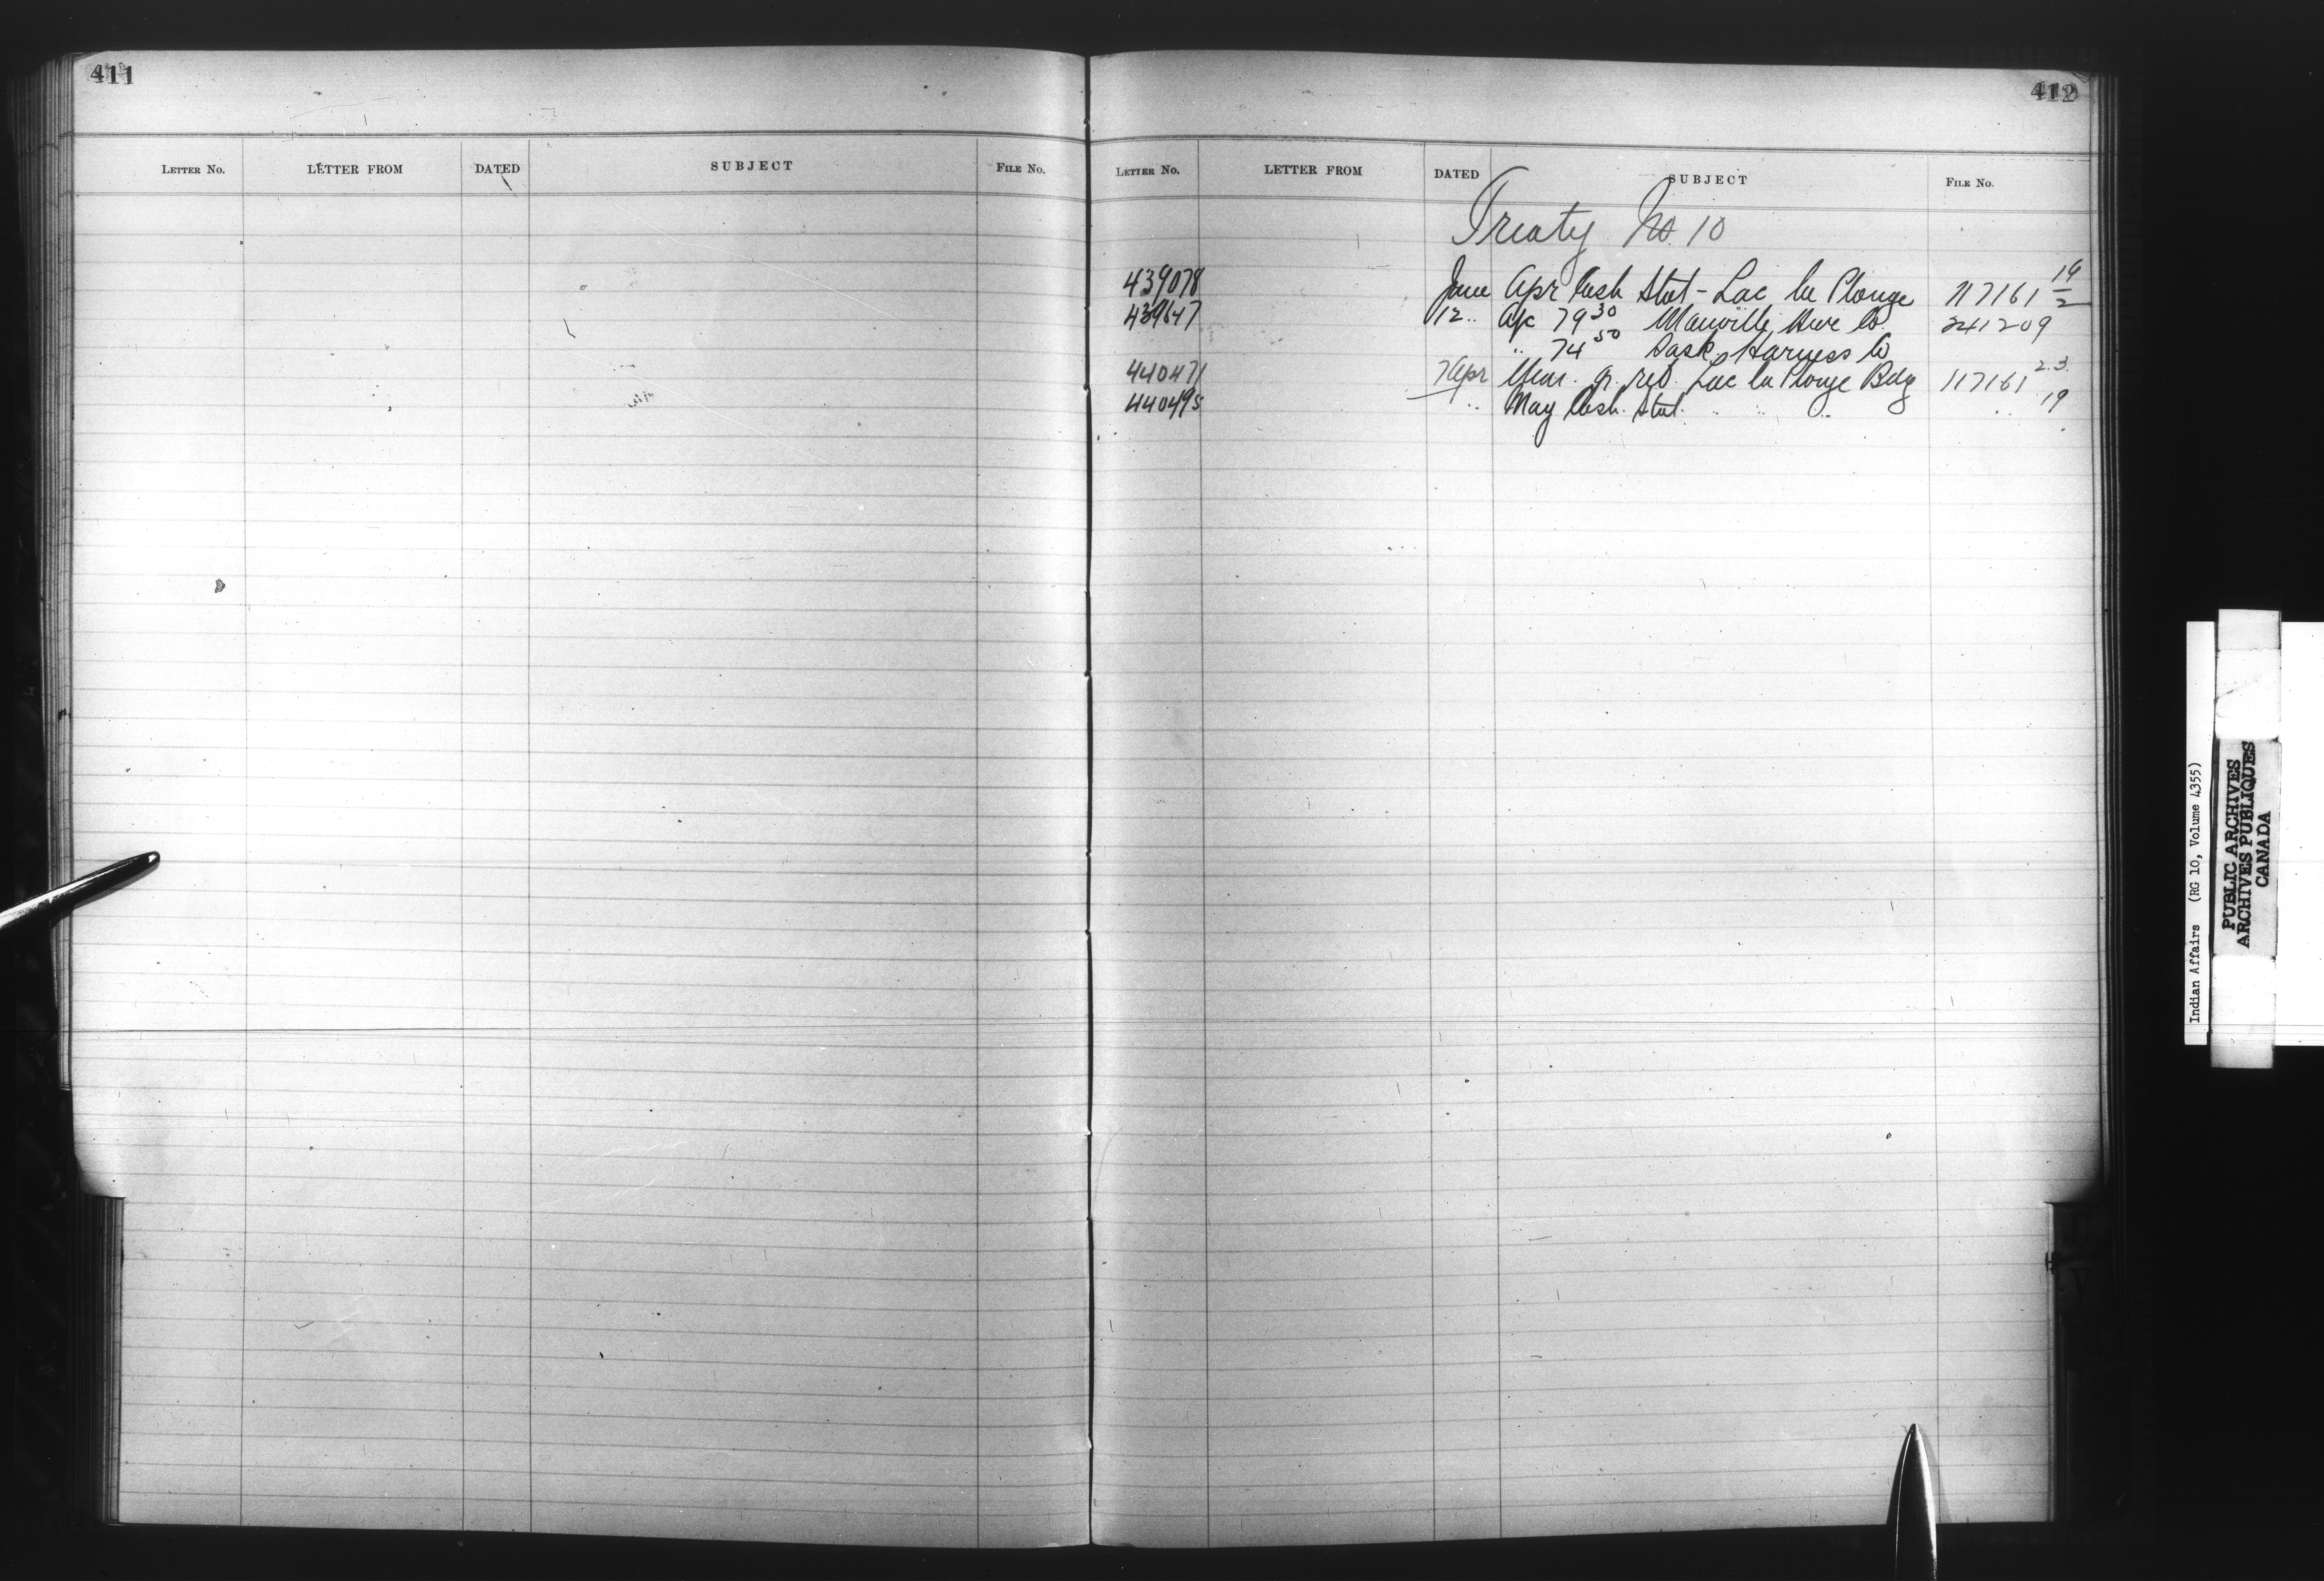 411
LETTER NO. LETTER FROM DATED SUBJECT FILE No.
412
LETTER NO. LETTER FROM DATED SUBJECT FILE No.
Treaty No. 10
439078 June Apr Cash Stat - Lac la Plonge 117161 19/2
439647 12 .. a/c 79 30 Manville Hwe Co. 241209
.. 74 50 Sask. Harness Co
440471 7 Apr gr. red. Lac la Plonge Bdg 117161 2.3.
440495 .. May Cash. Stat. .. .. .. .. 19
Indian Affairs (RG 10, Volume 4355)
PUBLIC ARCHIVES
ARCHIVES PUBLIQUES
CANADA